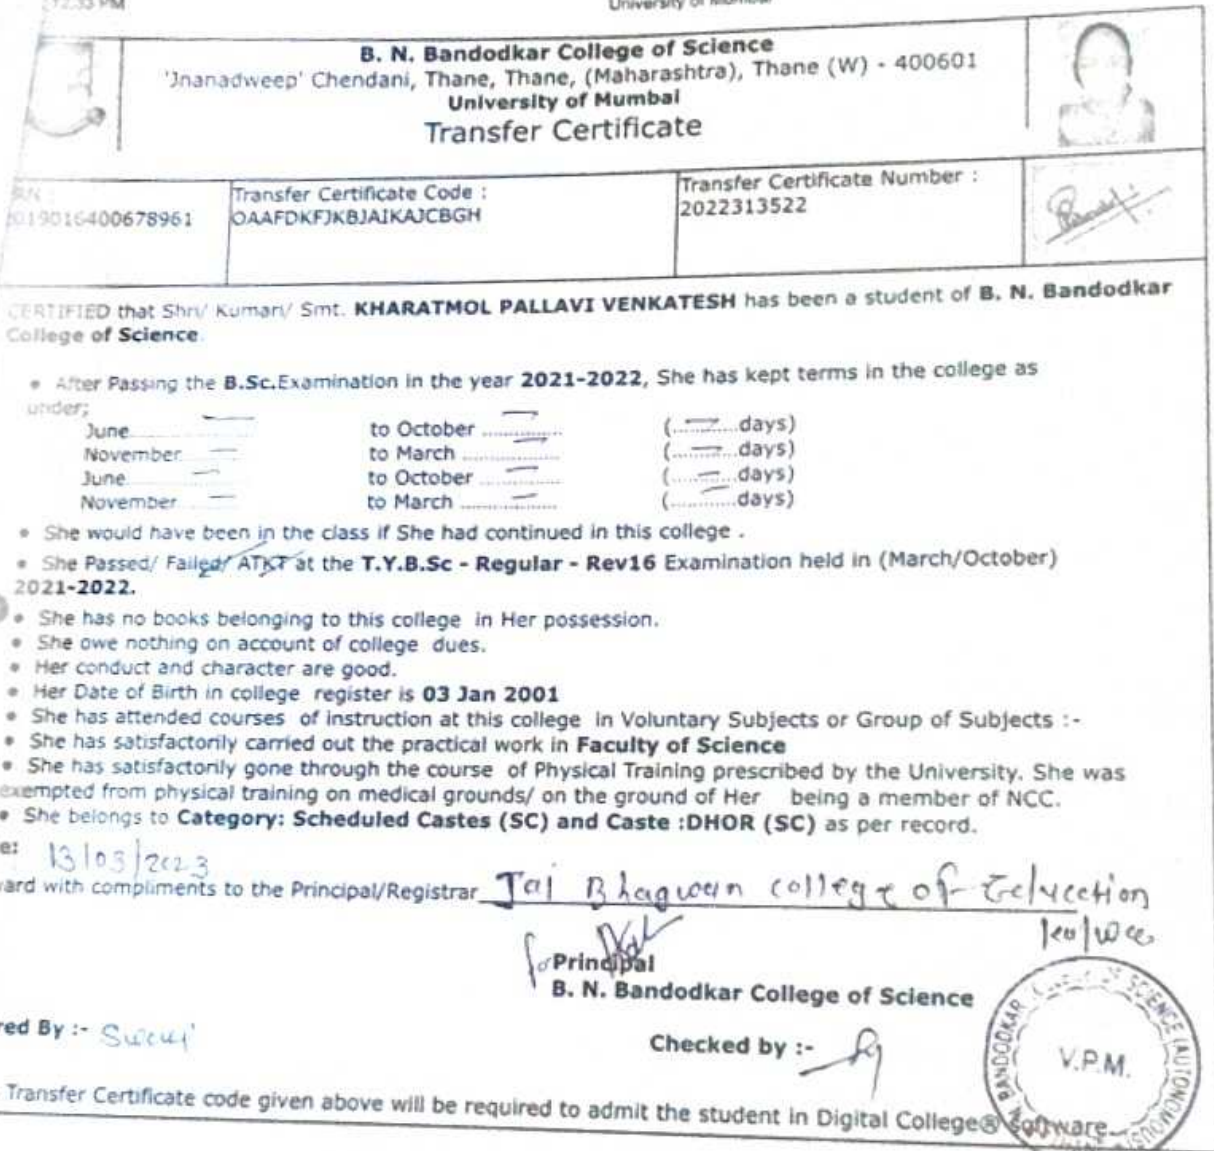 12:33 PM
University of Mumbai
B. N. Bandodkar College of Science
'Jnanadweep' Chendani, Thane, Thane, (Maharashtra), Thane (W) - 400601
University of Mumbai
Transfer Certificate
Transfer Certificate Code :
Transfer Certificate Number :
019016400678961
OAAFDKFJKBJAIKAJCBGH
2022313522
CERTIFIED that Shri/ Kumari/ Smt. KHARATMOL PALLAVI VENKATESH has been a student of B. N. Bandodkar
College of Science.
• After Passing the B.Sc.Examination in the year 2021-2022, She has kept terms in the college as
under;
June to October (.........days)
November to March (.........days)
June to October (.........days)
November to March (.........days)
• She would have been in the class if She had continued in this college .
• She Passed/ Failed/ ATKT at the T.Y.B.Sc - Regular - Rev16 Examination held in (March/October)
2021-2022.
• She has no books belonging to this college in Her possession.
• She owe nothing on account of college dues.
• Her conduct and character are good.
• Her Date of Birth in college register is 03 Jan 2001
• She has attended courses of instruction at this college in Voluntary Subjects or Group of Subjects :-
• She has satisfactorily carried out the practical work in Faculty of Science
• She has satisfactorily gone through the course of Physical Training prescribed by the University. She was
exempted from physical training on medical grounds/ on the ground of Her being a member of NCC.
• She belongs to Category: Scheduled Castes (SC) and Caste :DHOR (SC) as per record.
e: 13/03/2023
ard with compliments to the Principal/Registrar Jai Bhagwan college of Education
Principal
B. N. Bandodkar College of Science
red By :-
Checked by :-
V.P.M.
BANDODKAR SCIENCE (AUTONOMOUS)
Transfer Certificate code given above will be required to admit the student in Digital College® software